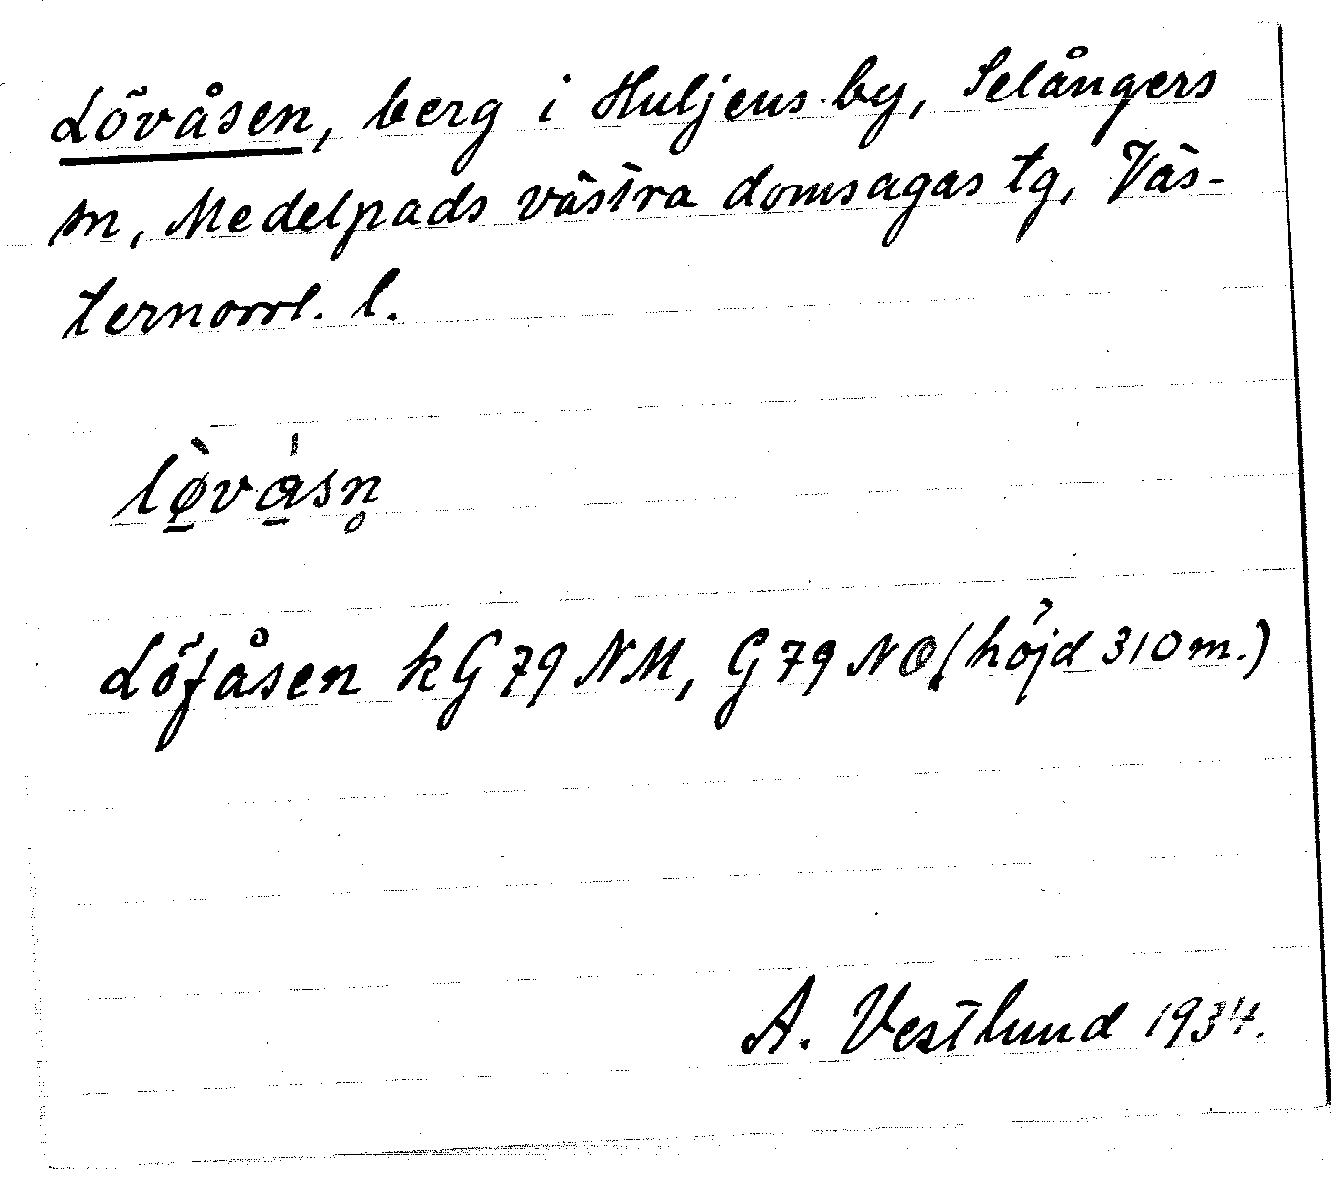 Lövåsen, berg i Huljens by, Selångers
sn, Medelpads västra domsagas tg, Väs-
ternorrl. l.
lø̠̀va̠̍sn̥
Löfåsen kG79NM, G79NO (höjd 310 m.)
A. Vestlund 1934.